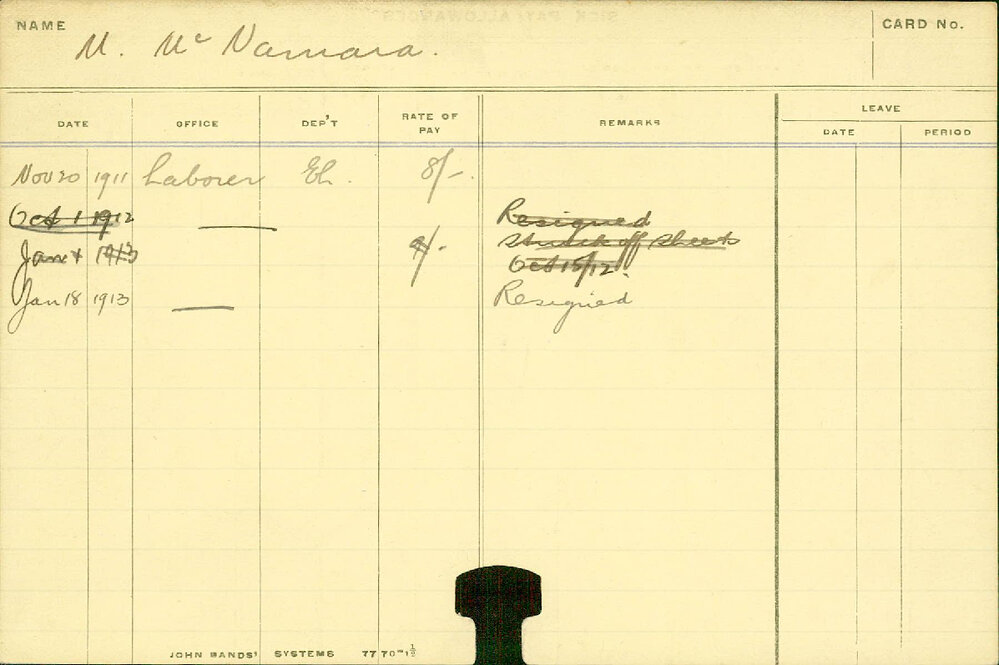 NAME M. Mc Namara. CARD No.
LEAVE
DATE OFFICE DEP'T RATE OF PAY REMARKS DATE PERIOD
Nov 20 1911 Laborer Eh. 8/-.
Oct 1 1912 — Resigned
struck off sheets
Jan 4 1913 9/-
Oct 15/12.
Jan 18 1913 — Resigned
JOHN SANDS' SYSTEMS 77 70